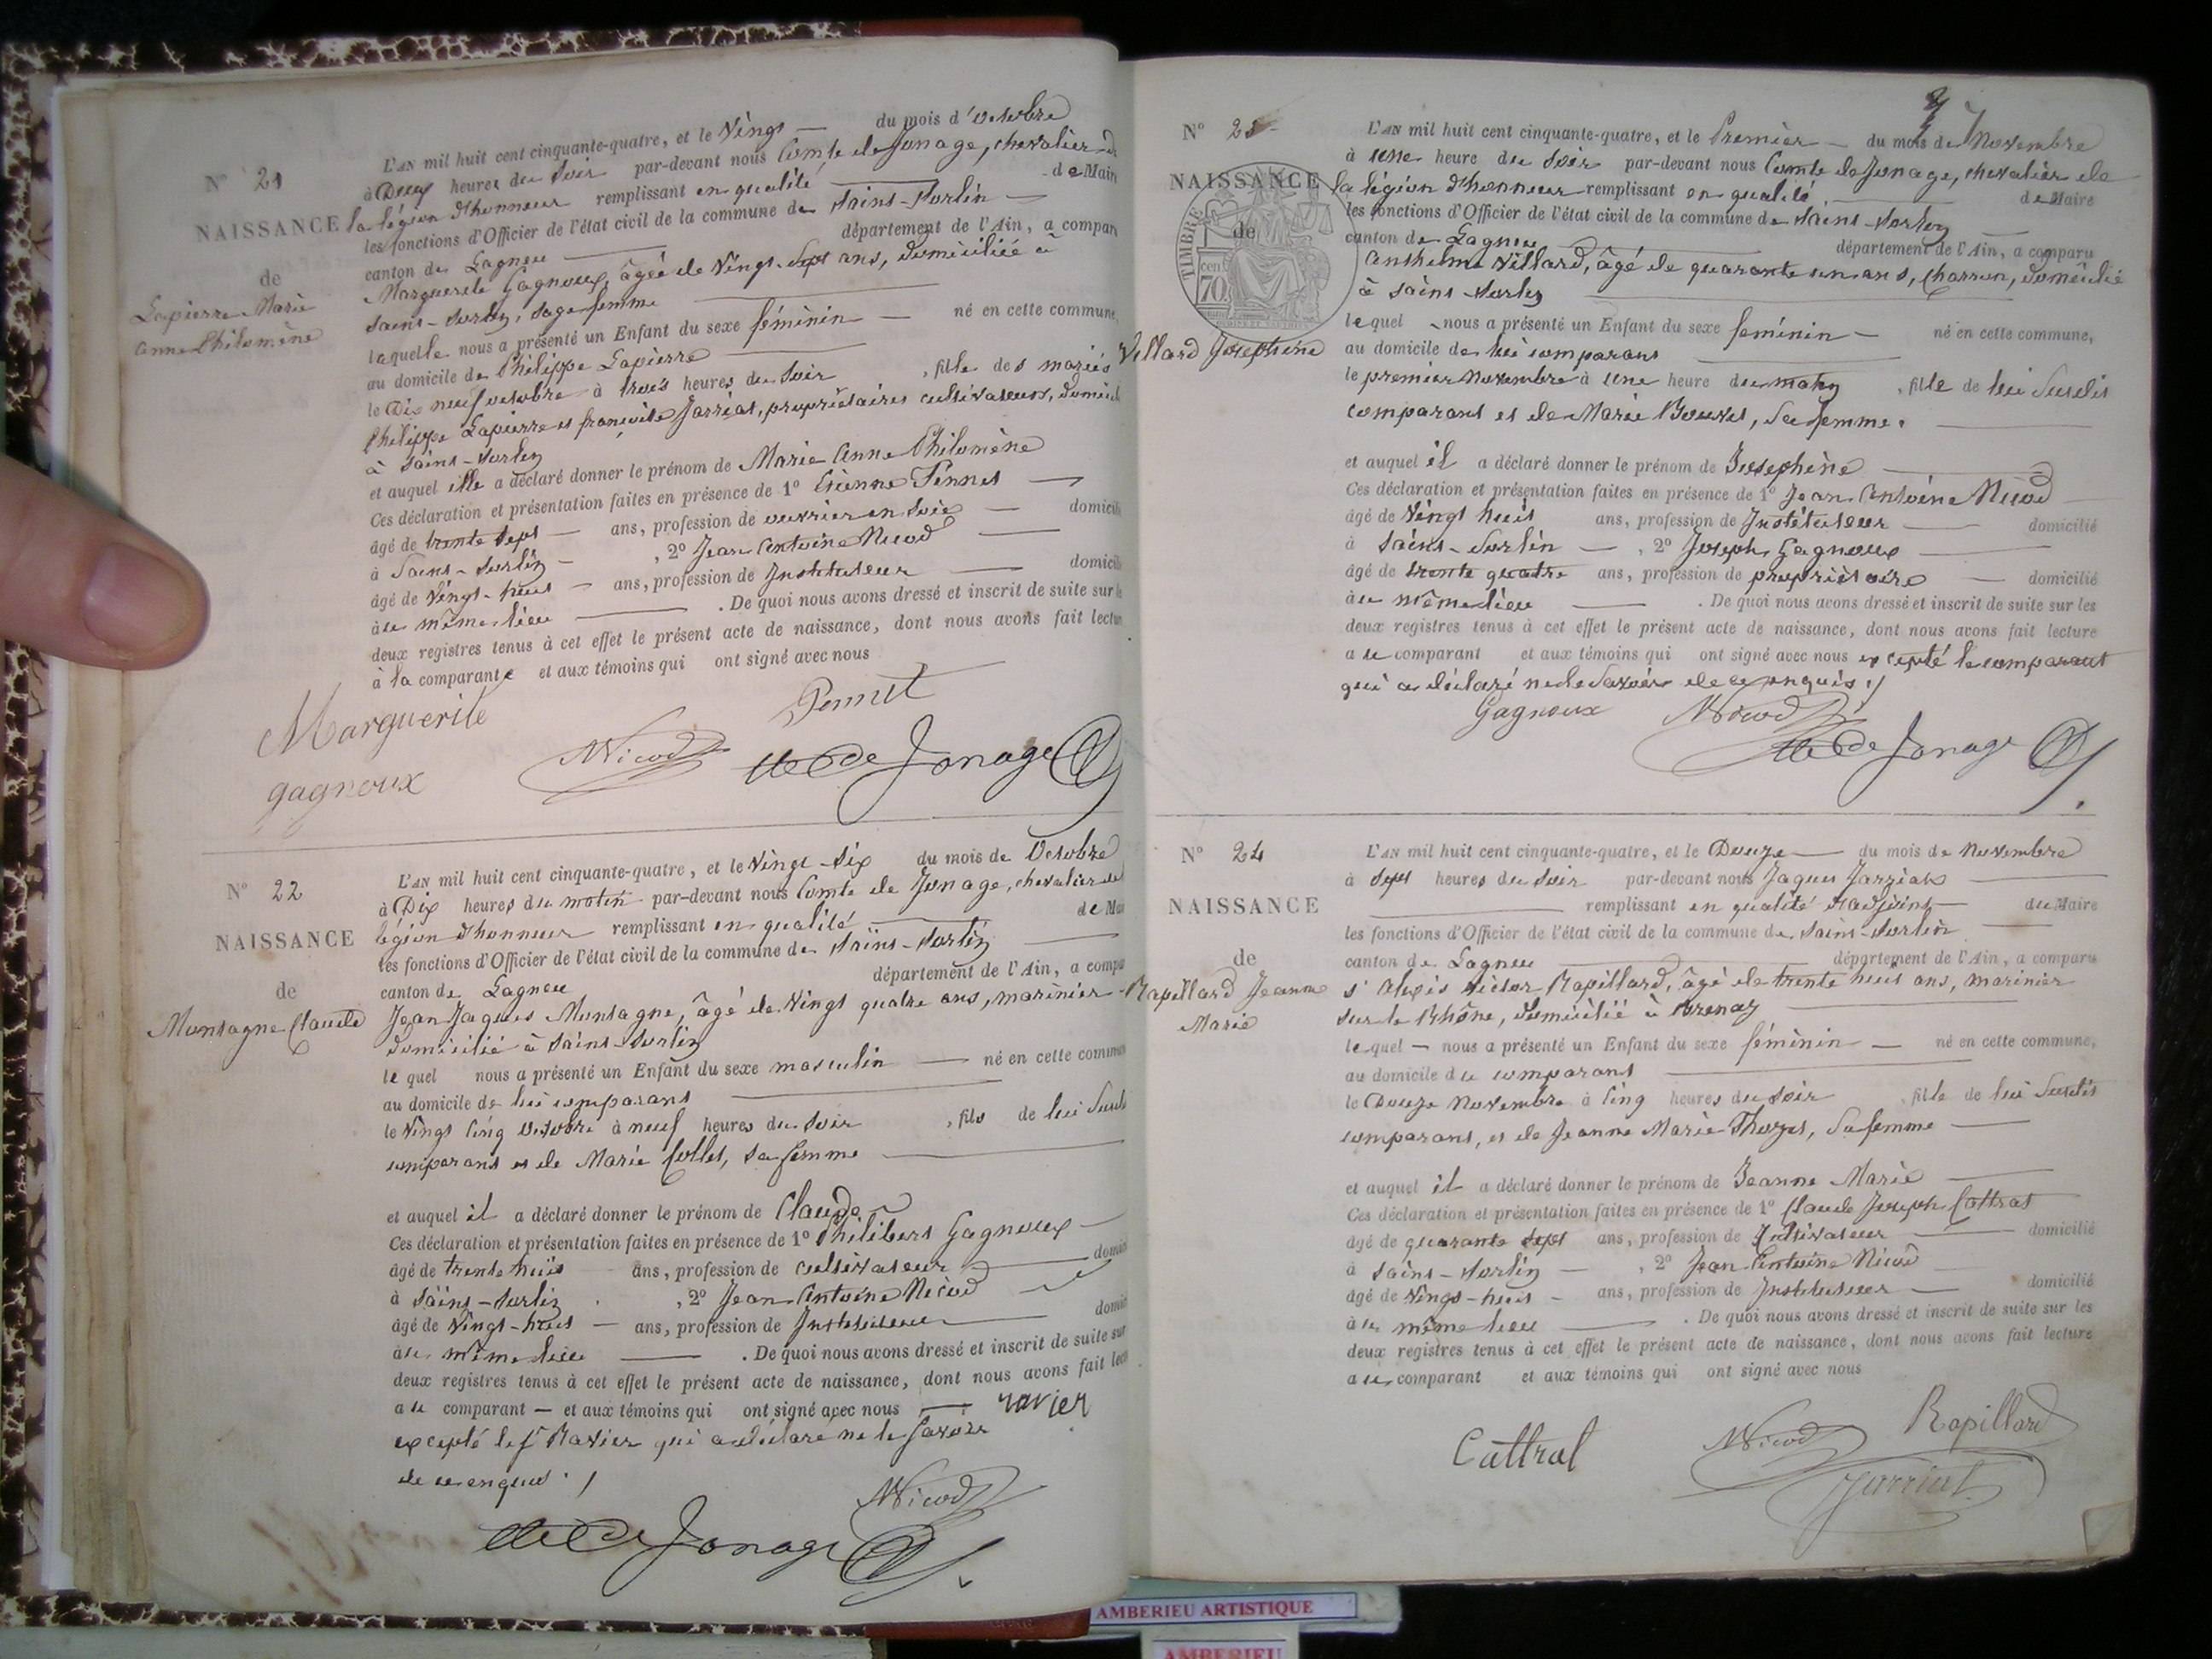 N° 21
NAISSANCE
de
Lapierre Marie
Anne Philomène
L'AN mil huit cent cinquante-quatre, et le Vingt — du mois d'Octobre
à Deux heures du Soir par-devant nous Comte de Jonage, chevalier de
la légion d'honneur remplissant en qualité de Maire
les fonctions d'Officier de l'état civil de la commune de Saint-Sorlin
canton de Lagnieu département de l'Ain, a comparu
Marguerite Gagnoux, âgée de Vingt-Sept ans, domiciliée à
Saint-Sorlin, Sage femme
laquelle nous a présenté un Enfant du sexe féminin — né en cette commune,
au domicile de Philippe Lapierre
le Dix neuf octobre à trois heures du Soir , fille des mariés
Philippe Lapierre et françoise Jarriat, propriétaires cultivateurs, domiciliés
à Saint-Sorlin
et auquel elle a déclaré donner le prénom de Marie Anne Philomène
Ces déclaration et présentation faites en présence de 1° Etienne Pennet
âgé de trente Sept — ans, profession de ouvrier en Soie — domicilié
à Saint-Sorlin — , 2° Jean Antoine Nicod
âgé de Vingt-huit — ans, profession de Instituteur — domicilié
au même lieu — . De quoi nous avons dressé et inscrit de suite sur les
deux registres tenus à cet effet le présent acte de naissance, dont nous avons fait lecture
à la comparante et aux témoins qui ont signé avec nous
Marguerite
gagnoux
Pennet
Nicod
Cte de Jonage
N° 22
NAISSANCE
de
Montagne Claude
L'AN mil huit cent cinquante-quatre, et le Vingt-Six du mois de Octobre
à Dix heures du matin par-devant nous Comte de Jonage, chevalier de la
légion d'honneur remplissant en qualité de Maire
les fonctions d'Officier de l'état civil de la commune de Saint-Sorlin
canton de Lagnieu département de l'Ain, a comparu
Jean Jaques Montagne, âgé de Vingt quatre ans, marinier
domicilié à Saint-Sorlin
lequel nous a présenté un Enfant du sexe masculin — né en cette commune
au domicile de lui comparant
le Vingt Cinq octobre à neuf heures du Soir , fils de lui Susdit
comparant et de Marie Collet, sa femme
et auquel il a déclaré donner le prénom de Claude
Ces déclaration et présentation faites en présence de 1° Philibert Gagnoux
âgé de trente huit ans, profession de cultivateur domicilié
à Saint-Sorlin , 2° Jean Antoine Nicod
âgé de Vingt-huit — ans, profession de Instituteur domicilié
au même lieu — . De quoi nous avons dressé et inscrit de suite sur
deux registres tenus à cet effet le présent acte de naissance, dont nous avons fait lecture
au comparant — et aux témoins qui ont signé avec nous — ravier
excepté le Sr Ravier qui a déclaré ne le Savoir
de ce enquis ./
Nicod
Cte de Jonage
7
N° 23
NAISSANCE
de
TIMBRE
cent
70
Villard Josephine
L'AN mil huit cent cinquante-quatre, et le Premier — du mois de Novembre
à une heure du Soir par-devant nous Comte de Jonage, chevalier de
la légion d'honneur remplissant en qualité de Maire
les fonctions d'Officier de l'état civil de la commune de Saint-Sorlin
canton de Lagnieu département de l'Ain, a comparu
Anthelme Villard, âgé de quarante un ans, Charron, domicilié
à Saint-Sorlin
lequel nous a présenté un Enfant du sexe feminin — né en cette commune,
au domicile de lui comparant
le premier Novembre à une heure du matin , fille de lui Susdit
comparant et de Marie Bouvet, Sa femme.
et auquel il a déclaré donner le prénom de Josephine
Ces déclaration et présentation faites en présence de 1° Jean Antoine Nicod
âgé de Vingt huit ans, profession de Instituteur — domicilié
à Saint-Sorlin — , 2° Joseph Gagnoux
âgé de trente quatre ans, profession de propriétaire — domicilié
au même lieu — . De quoi nous avons dressé et inscrit de suite sur les
deux registres tenus à cet effet le présent acte de naissance, dont nous avons fait lecture
au comparant et aux témoins qui ont signé avec nous excepté le comparant
qui a déclaré ne le Savoir de ce enquis ./
Gagnoux
Nicod
Cte de Jonage
N° 24
NAISSANCE
de
Rapillard Jeanne
Marie
L'AN mil huit cent cinquante-quatre, et le Douze — du mois de Novembre
à Sept heures du Soir par-devant nous Jaques Jarriat
remplissant en qualité d'adjoint du Maire
les fonctions d'Officier de l'état civil de la commune de Saint-Sorlin
canton de Lagnieu département de l'Ain, a comparu
Sr Alexis Victor Rapillard, âgé de trente huit ans, marinier
sur le Rhône, domicilié à Brenaz
lequel — nous a présenté un Enfant du sexe féminin — né en cette commune,
au domicile du comparant
le Douze Novembre à Cinq heures du Soir , fille de lui Susdit
comparant, et de Jeanne Marie Thozet, Sa femme
et auquel il a déclaré donner le prénom de Jeanne Marie
Ces déclaration et présentation faites en présence de 1° Claude Joseph Cattrat
âgé de quarante Sept ans, profession de Cultivateur — domicilié
à Saint-Sorlin — , 2° Jean Antoine Nicod
âgé de Vingt-huit — ans, profession de Instituteur — domicilié
au même lieu — . De quoi nous avons dressé et inscrit de suite sur les
deux registres tenus à cet effet le présent acte de naissance, dont nous avons fait lecture
au comparant et aux témoins qui ont signé avec nous
Cattrat
Nicod
Rapillard
Jarriat
AMBERIEU ARTISTIQUE
AMBERIEU